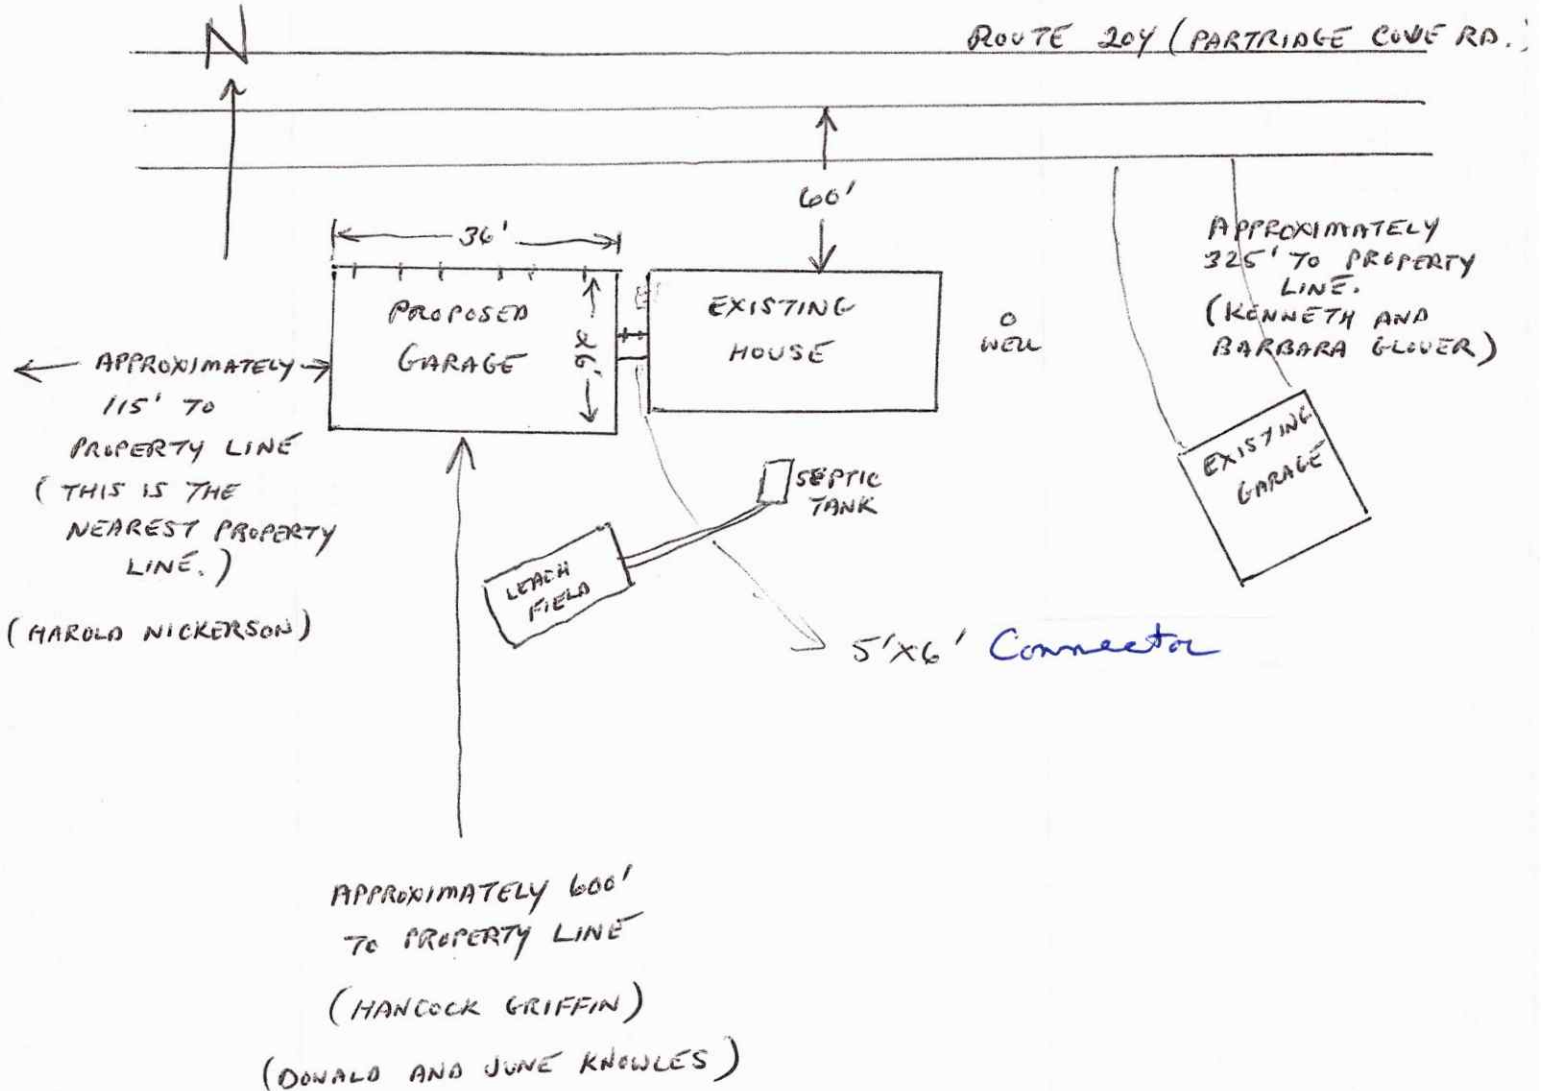 N
ROUTE 204 (PARTRIDGE COVE RD.
60'
36'
PROPOSED
GARAGE
26'
EXISTING
HOUSE
O
WELL
APPROXIMATELY
325' TO PROPERTY
LINE.
(KENNETH AND
BARBARA GLOVER)
APPROXIMATELY
115' TO
PROPERTY LINE
(THIS IS THE
NEAREST PROPERTY
LINE.)
(HAROLD NICKERSON)
EXISTING
GARAGE
SEPTIC
TANK
LEACH
FIELD
5'X6' Connector
APPROXIMATELY 600'
TO PROPERTY LINE
(HANCOCK GRIFFIN)
(DONALD AND JUNE KNOWLES)